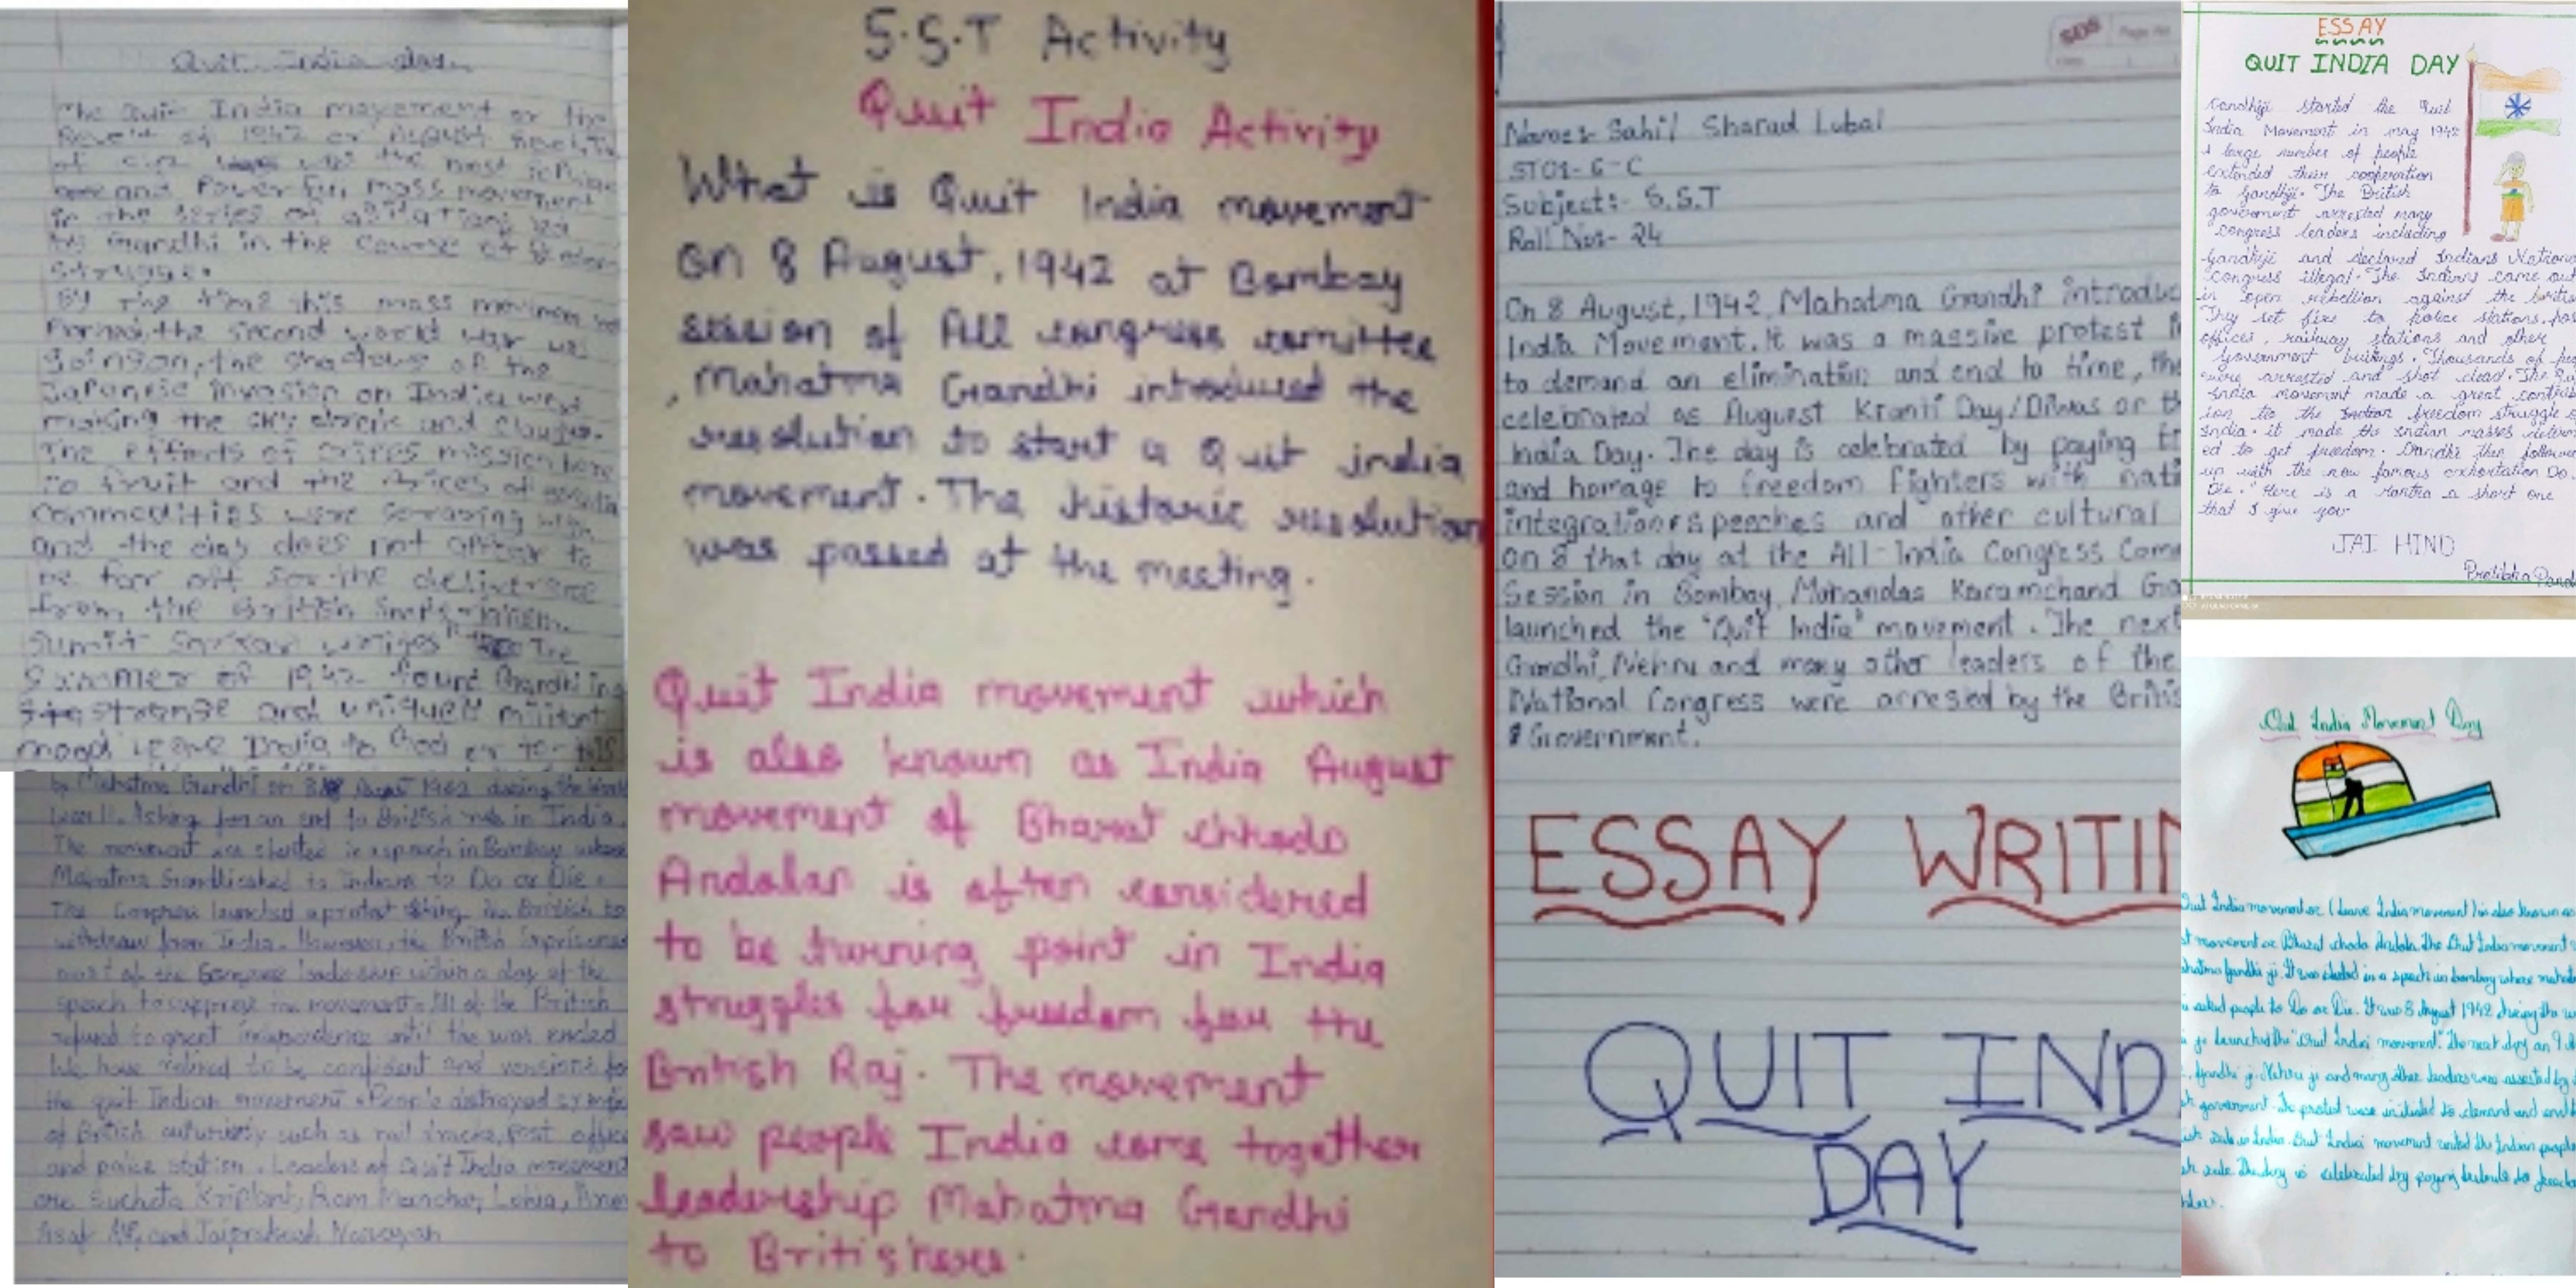 Quit India day
The Quit India movement or the
Revolt of 1942 or August Revolution
of was the most
and Powerful mass movement
in the series of agitations led
by Gandhi in the course of
struggle.
By the time this mass movement
the second world war was
going on, the shadows of the
Japanese invasion on India were
making the sky and
The effects of mission
to fruit and the Prices of
commodities were
and the day does not appear to
be far off for the deliverance
from the British
Sumit Sarkar writes " The
summer of 1942 found Gandhi in
strange and unique militant
mood leave India to God or to
by Mahatma Gandhi on 8 August 1942 during the World
War II. Asking for an end to British rule in India.
The movement was started in a speach in Bombay where
Mahatma Gandhi asked to Indians to Do or Die.
The Congress launched a protest asking the British to
withdraw from India. However, the British imprisoned
most of the Congress leadership within a day of the
speech to suppress the movement. All of the British
refused to grant independence until the was ended
We have to be confident and
the quit Indian movement. People distroyed
of British such as rail tracks, post office
and police station. Leaders of Quit India movement
are Sucheta Kriplani, Ram Manohar Lohia,
Asaf Ali, and Jaiprakash Narayan
S.S.T Activity
Quit India Activity
What is Quit India movement
On 8 August, 1942 at Bombay
session of All congress comittee
, Mahatma Gandhi introduced the
resolution to start a Quit india
movement. The historic resolution
was passed at the meeting.
Quit India movement which
is also known as India August
movement of Bharat chhodo
Andolan is often considered
to be turning point in India
struggles for freedom for the
British Raj. The movement
saw people India come together
leadership Mahatma Gandhi
to Britishers.
SDS Page No
Name:- Sahil Sharad Lubal
STD:- 6-C
Subject:- S.S.T
Roll No:- 24
On 8 August, 1942, Mahatma Gandhi introduc
India Movement. It was a massive protest
to demand an elimination and end to time, the
celebrated as August Kranti Day/Diwas or th
India Day. The day is celebrated by paying
and homage to freedom fighters with nati
integration speeches and other cultural
on 8 that day at the All-India Congress Com
Session in Bombay, Mohandas Karamchand Ga
launched the "Quit India" movement. The next
Gandhi, Nehru and many other leaders of the
National Congress were arrested by the Britis
Government.
ESSAY WRITIN
QUIT IND
DAY
ESSAY
QUIT INDIA DAY
Gandhiji started the Quit
India Movement in may 1942
A large number of people
extended their cooperation
to Gandhiji. The British
government arrested many
congress leaders including
Gandhiji and declared Indians Nationa
congress illegal. The Indians came out
in open rebellion against the britis
They set fire to police stations, pos
offices, railway stations and other
Government buildings. Thousands of peo
were arrested and shot dead. The Qu
India movement made a great contrib
ion to the Indian freedom struggle
India. it made the indian masses determ
ed to get freedom. Gandhi then followed
up with the now famous exhortation Do
Die." Here is a Mantra a short one
that I give you
JAI HIND
Pratibha Pand
Quit India Movement Day
Quit India movement or (Leave India movement) is also known as
movement or Bharat choda Andola. The Quit India movement
Gandhi ji. It was started in a speech in bombay where
asked people to Do or Die. It was 8 August 1942 during the
ji launched the "Quit India movement". The next day
Gandhi ji, Nehru ji and many other leaders was arrested by
government. The protest was initiated to demand and end
rule in India. Quit India movement united the Indian people
rule. The day is celebrated by paying tribute to freedo